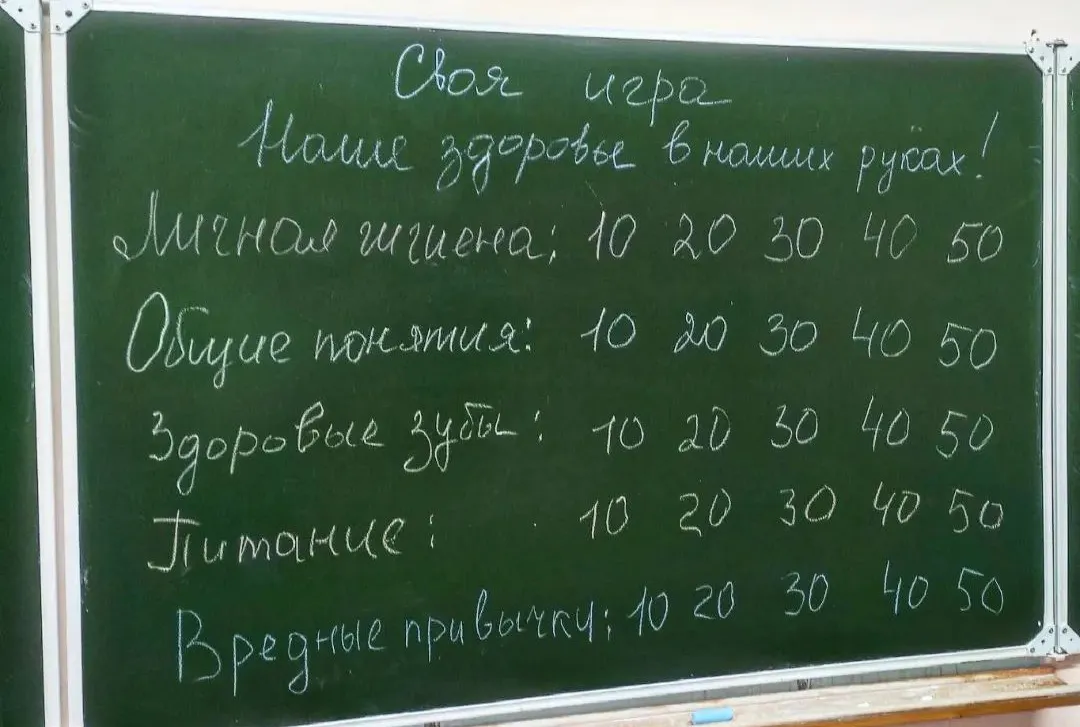 Своя игра
Наше здоровье в наших руках!
Личная гигиена: 10 20 30 40 50
Общие понятия: 10 20 30 40 50
Здоровые зубы: 10 20 30 40 50
Питание: 10 20 30 40 50
Вредные привычки: 10 20 30 40 50